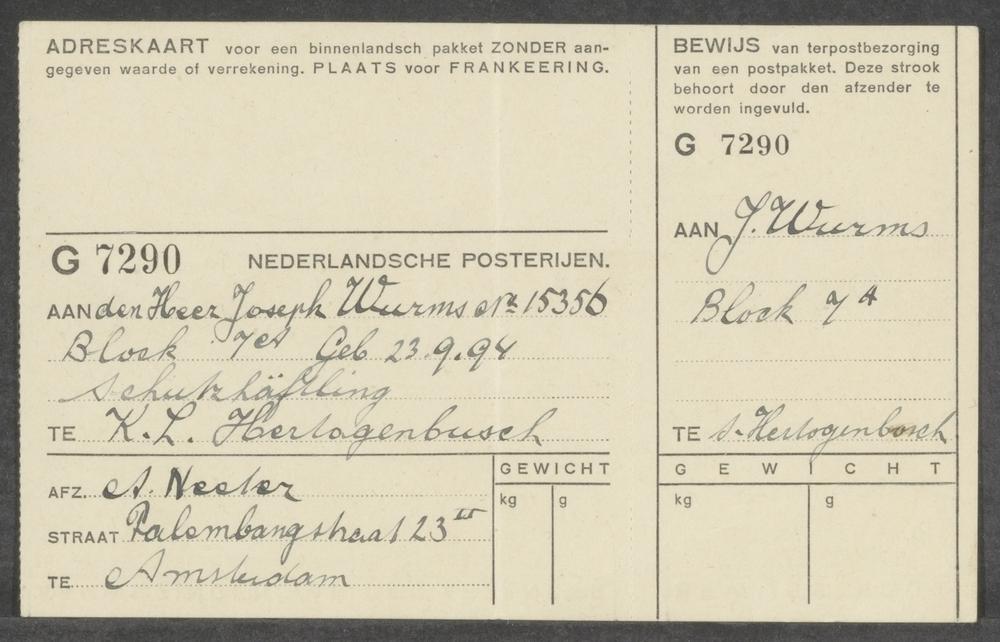 ADRESKAART voor een binnenlandsch pakket ZONDER aan-
gegeven waarde of verrekening. PLAATS voor FRANKEERING.
G 7290 NEDERLANDSCHE POSTERIJEN.
AAN den Heer Joseph Wurms No 15356
Block 7A Geb 23.9.94
Schutzhäftling
TE K.L. Hertogenbusch
AFZ. A. Neeter
STRAAT Palembangstraat 23 III
TE Amsterdam
GEWICHT
kg g
BEWIJS van terpostbezorging
van een postpakket. Deze strook
behoort door den afzender te
worden ingevuld.
G 7290
AAN J. Wurms
Block 7A
TE s-Hertogenbosch
GEWICHT
kg g